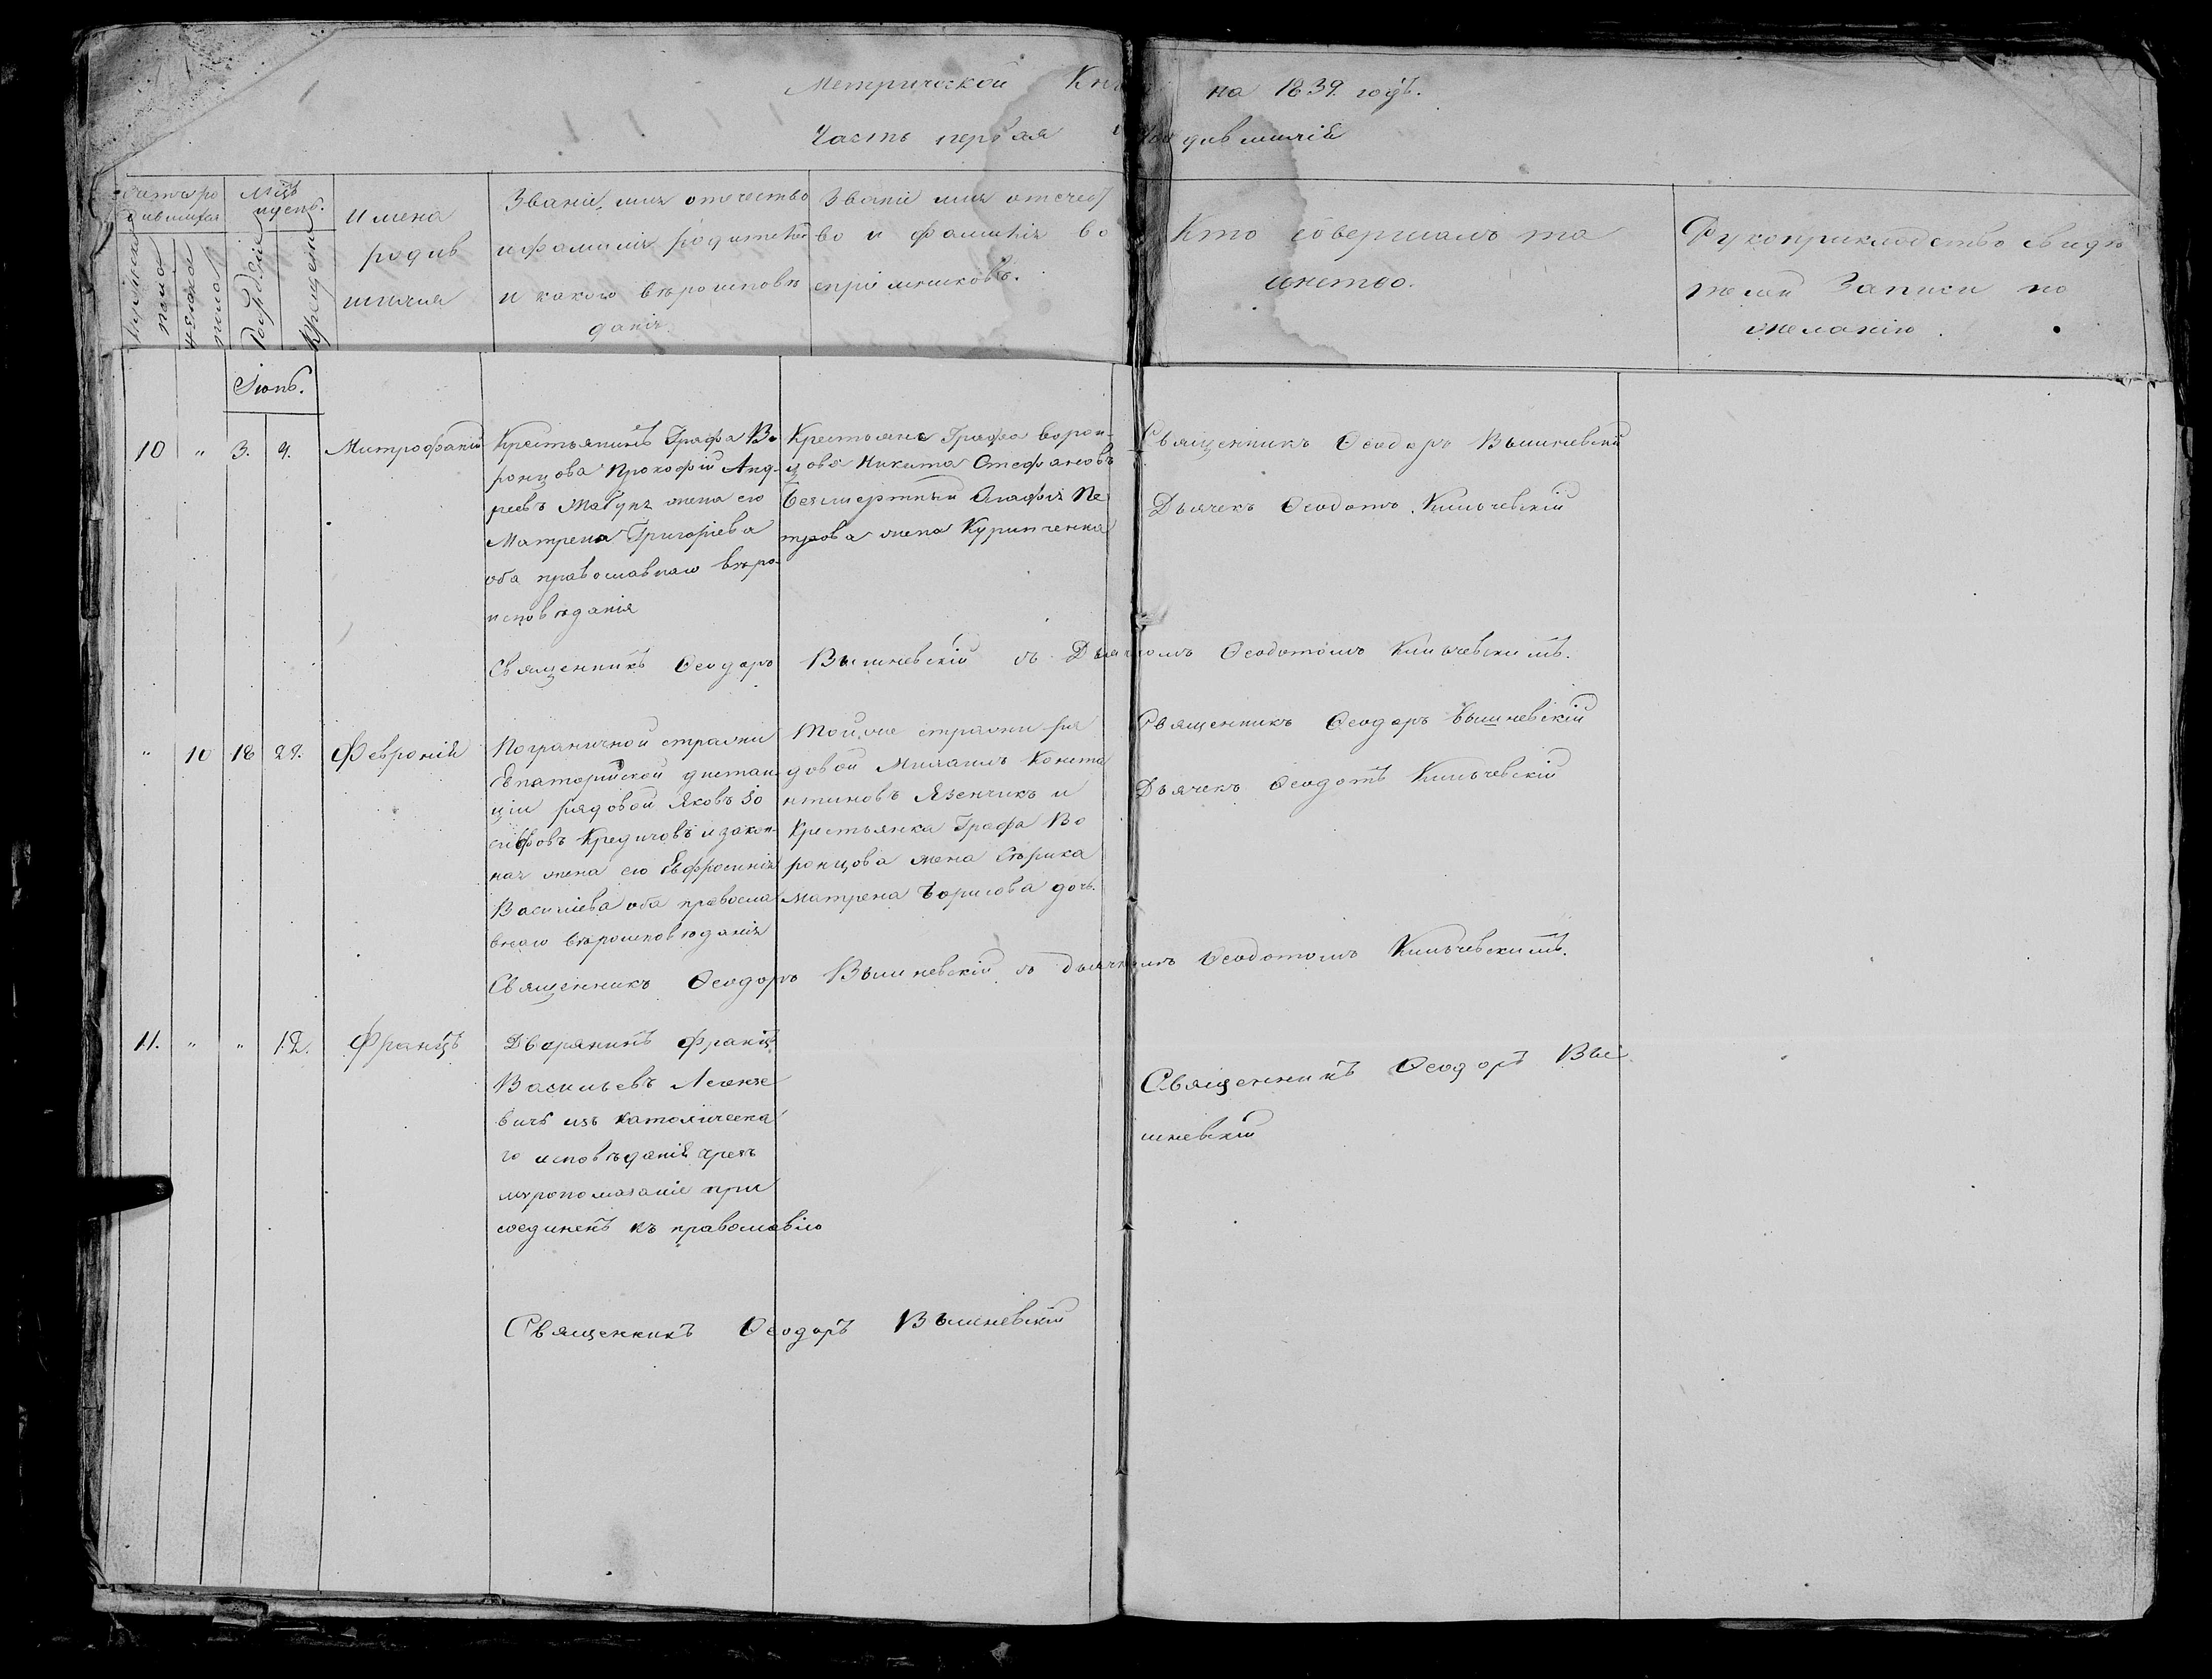 Метрической Кни на 1839. годъ.
Часть первая родившихся
Счетъ ро
дившихся
Мужеска
пола
женска
пола
Мѣсц.
и день.
Рожденія
Крещенія
Имена
родив
шихся
Званіе, имя отечество
и фамилія родителей
и какого вѣроисповѣ
данія
Званіе имя отечест
во и фамилія во
спріемниковъ.
Кто совершалъ та
инство.
Рукоприкладство свидѣ
телей Записи по
желанію.
Іюнь.
10 " 3. 9. Митрофаній
Крестьянинъ Графа Во
ронцова Прокофій Анд-
реевъ жена его
Матрена Григоріева
оба православнаго вѣро-
исповѣданія
Крестьяне Графа Ворон-
цова Никита Стефановъ
Безсмертный Агафія Пе
трова жена Курипченка
Священникъ Ѳеодоръ Вышневскій
Дьячекъ Ѳеодотъ Кильчевскій
Священникъ Ѳеодоръ Вышневскій съ Дьячкомъ Ѳеодотомъ Кильчевскимъ.
" 10 18 22. Февронія
Пограничной стражи
Евпаторійской дистан
ціи рядовой Яковъ Іо
сифовъ Кредичовъ и закон-
ная жена его Евфросинія
Василіева оба правосла
внаго вѣроисповѣданія
Той же стражи ря
довой Михаилъ Конста
нтиновъ Язенчикъ и
Крестьянка Графа Во
ронцова жена Сѣрика
Матрена Борисова дочь.
Священникъ Ѳеодоръ Вышневскій
Дьячекъ Ѳеодотъ Кильчевскій
Священникъ Ѳеодоръ Вышневскій съ дьячкомъ Ѳеодотомъ Кильчевскимъ.
11. " " 12. Францъ
Дворянинъ Францъ
Васильевъ
вичъ изъ католическа
го исповѣданія чрезъ
мѵропомазаніе при
соединенъ къ православію
Священникъ Ѳеодоръ Вы
шневскій
Священникъ Ѳеодоръ Вышневскій